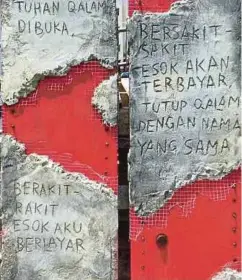 TUHAN QALAM
DIBUKA.
BERAKIT-
RAKIT
ESOK AKU
BERLAYAR
BERSAKIT-
SAKIT
ESOK AKAN
TERBAYAR
TUTUP QALAM
DENGAN NAMA
YANG SAMA